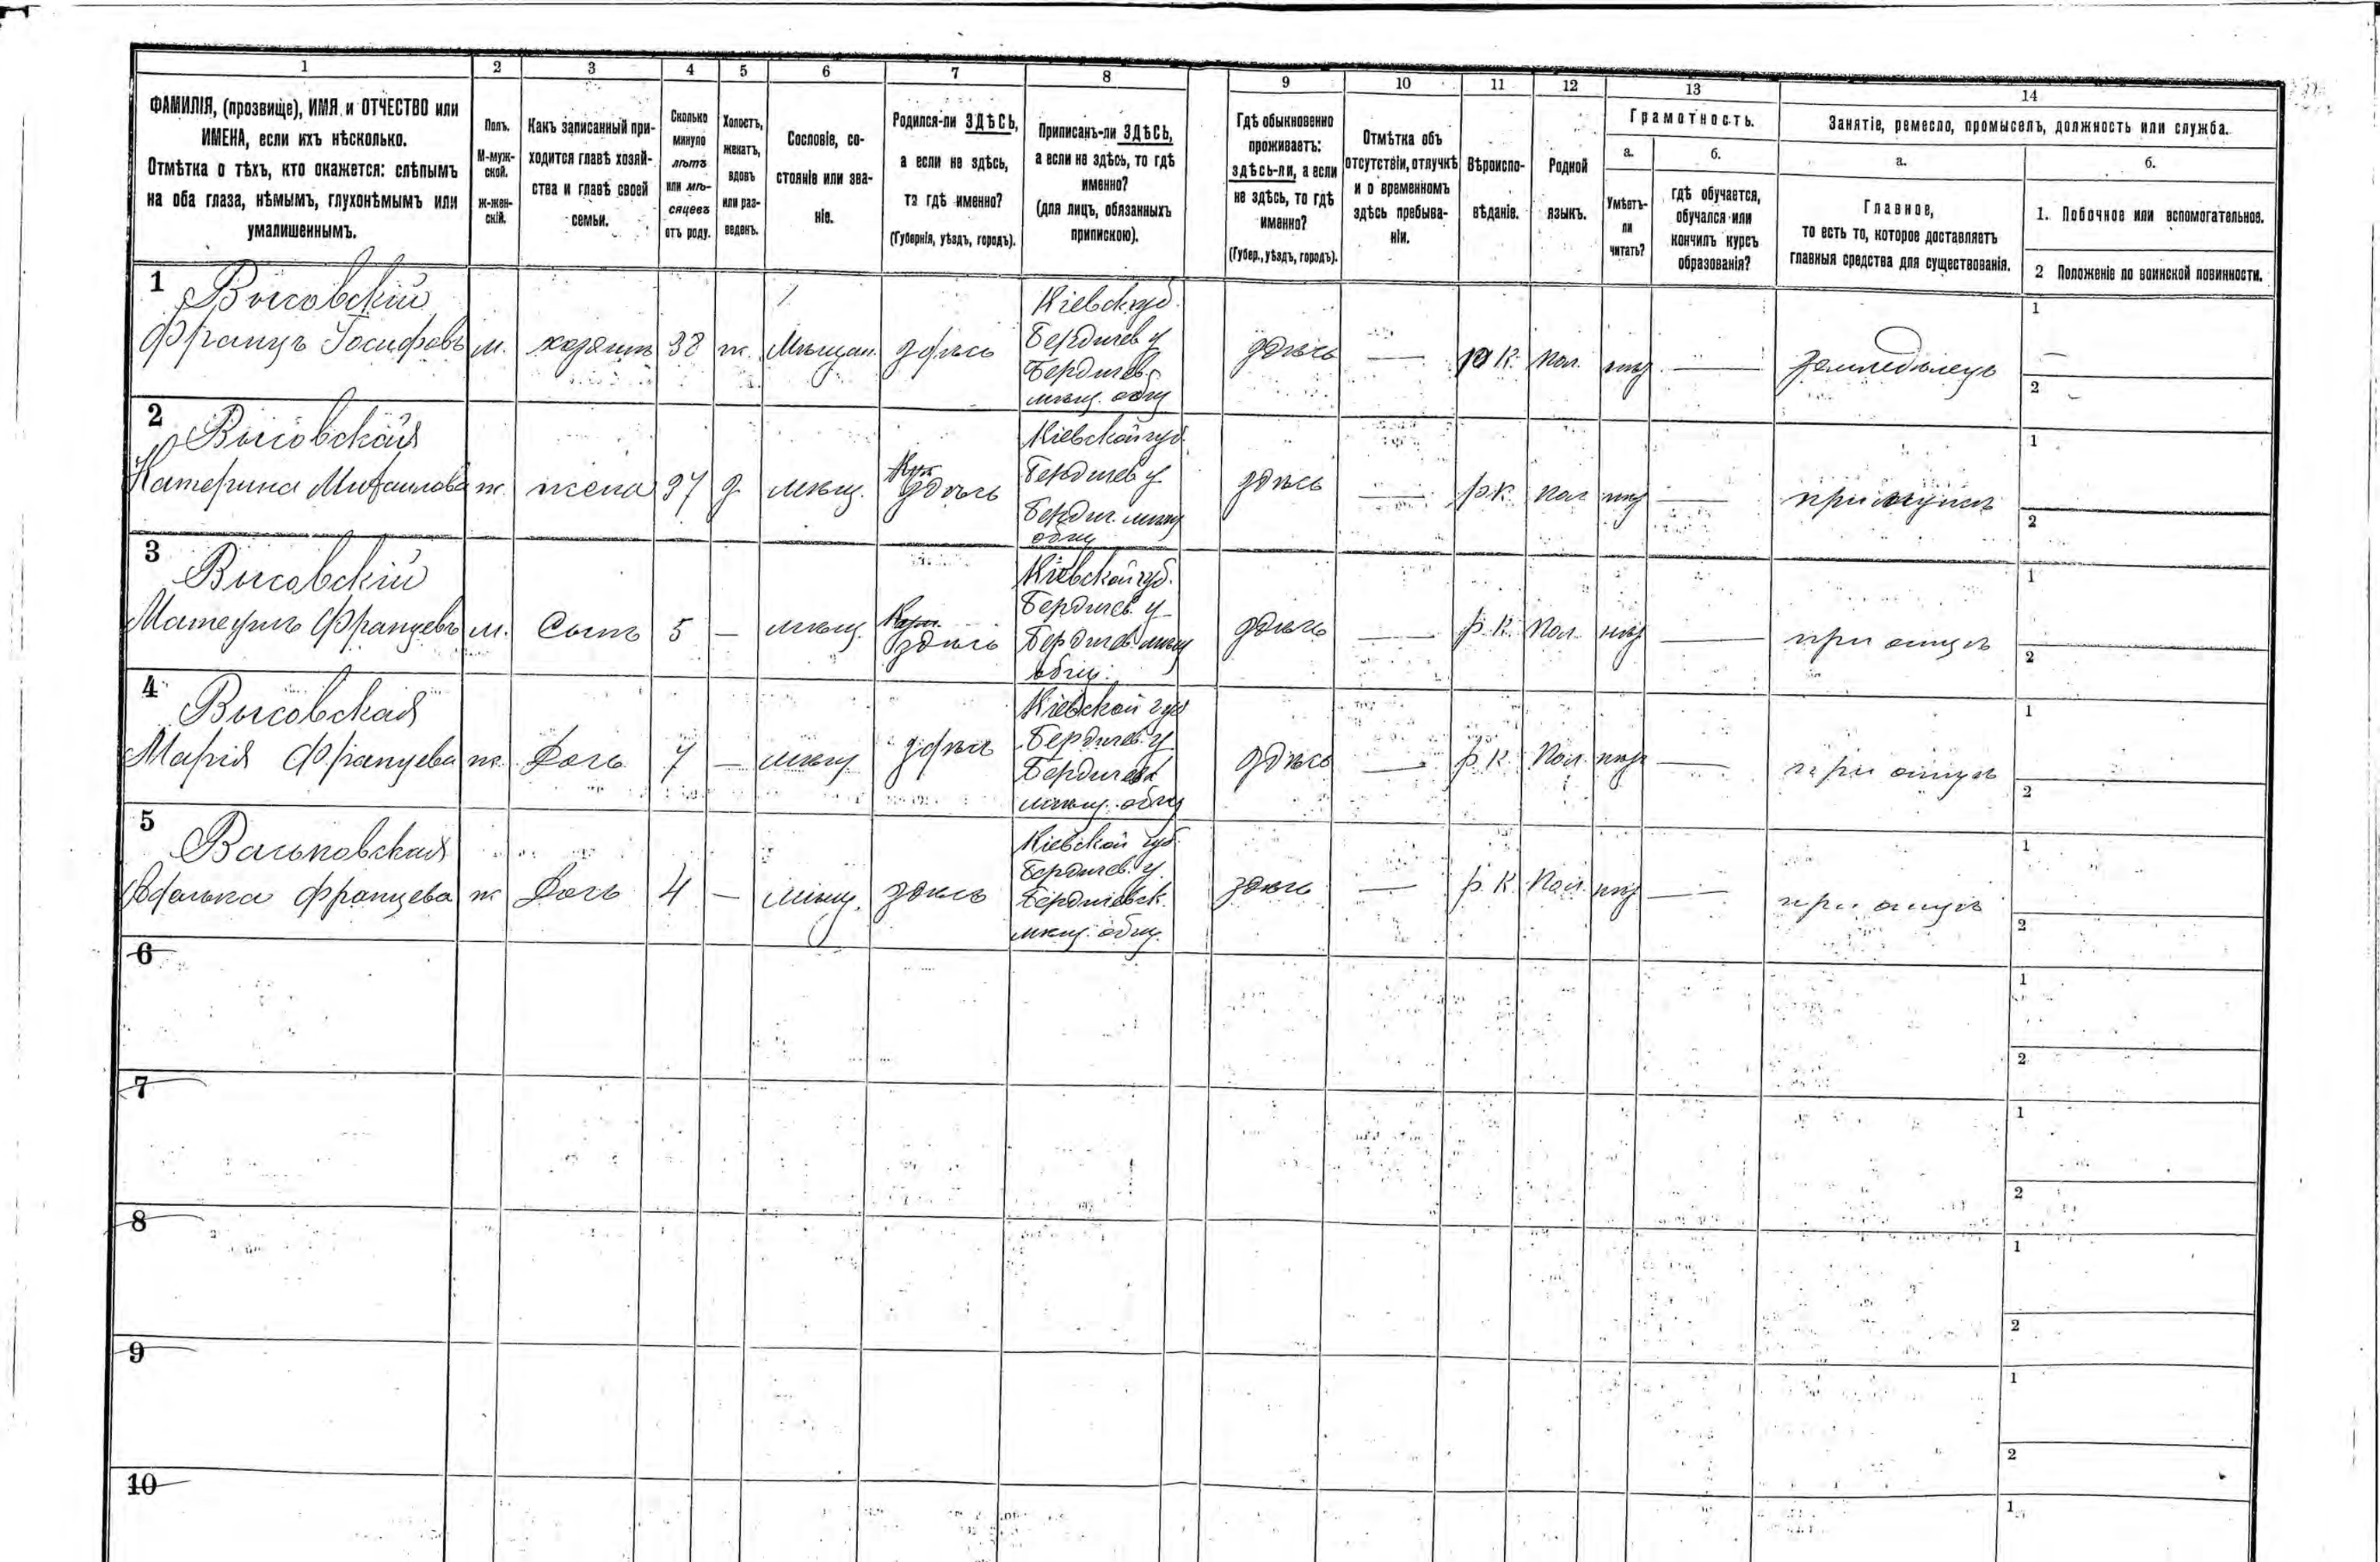 1 2 3 4 5 6 7 8 9 10 11 12 13 14
ФАМИЛІЯ, (прозвище), ИМЯ и ОТЧЕСТВО или
ИМЕНА, если ихъ нѣсколько.
Отмѣтка о тѣхъ, кто окажется: слѣпымъ
на оба глаза, нѣмымъ, глухонѣмымъ или
умалишеннымъ.
Полъ.
М-муж-
ской.
ж-жен-
скій.
Какъ записанный при-
ходится главѣ хозяй-
ства и главѣ своей
семьи.
Сколько
минуло
лѣтъ
или мѣ-
сяцевъ
отъ роду.
Холостъ,
женатъ,
вдовъ
или раз-
веденъ.
Сословіе, со-
стояніе или зва-
ніе.
Родился-ли ЗДѢСЬ,
а если не здѣсь,
то гдѣ именно?
(Губернія, уѣздъ, городъ).
Приписанъ-ли ЗДѢСЬ,
а если не здѣсь, то гдѣ
именно?
(для лицъ, обязанныхъ
припискою).
Гдѣ обыкновенно
проживаетъ:
здѣсь-ли, а если
не здѣсь, то гдѣ
именно?
(Губер., уѣздъ, городъ).
Отмѣтка объ
отсутствіи, отлучкѣ
и о временномъ
здѣсь пребыва-
ніи.
Вѣроиспо-
вѣданіе.
Родной
языкъ.
Грамотность.
а.
Умѣетъ-
ли
читать?
б.
гдѣ обучается,
обучался или
кончилъ курсъ
образованія?
Занятіе, ремесло, промыселъ, должность или служба.
а.
Главное,
то есть то, которое доставляетъ
главныя средства для существованія.
б.
1. Побочное или вспомогательное.
2 Положеніе по воинской повинности.
1
Францъ Іосифовъ
м. хозяинъ 38 ж. Мѣщан. здѣсь
Кіевск губ.
Бердичев у
Бердичев.
мѣщ. общ
здѣсь — р К. пол. нѣт — земледѣлецъ
1 —
2 —
2
Катерина Михаилова
ж. жена 37 з мѣщ. здѣсь
Кіевской губ.
Бердичев у
Бердич. мѣщ
общ
здѣсь — р.к. пол нѣт — при мужѣ
1
2
3
Францевъ
м. Сынъ 5 — мѣщ. здѣсь
Кіевской губ.
Бердичев. у
Бердичев. мѣщ
общ.
здѣсь — р. К. Пол. нѣт — при отцѣ
1
2
4
Марія Францева
ж. Дочь 7 — мѣщ здѣсь
Кіевской губ
Бердичев. у
Бердичевск
мѣщ. общ
здѣсь — р. К. Пол. нѣт — при отцѣ
1
2
5
Францева
ж Дочь 4 — мѣщ. здѣсь
Кіевской губ.
Бердичев. у.
Бердичевск.
мѣщ. общ.
здѣсь — р. К. Пол. нѣт — при отцѣ
1
2
6
1
2
7
1
2
8
1
2
9
1
2
10
1